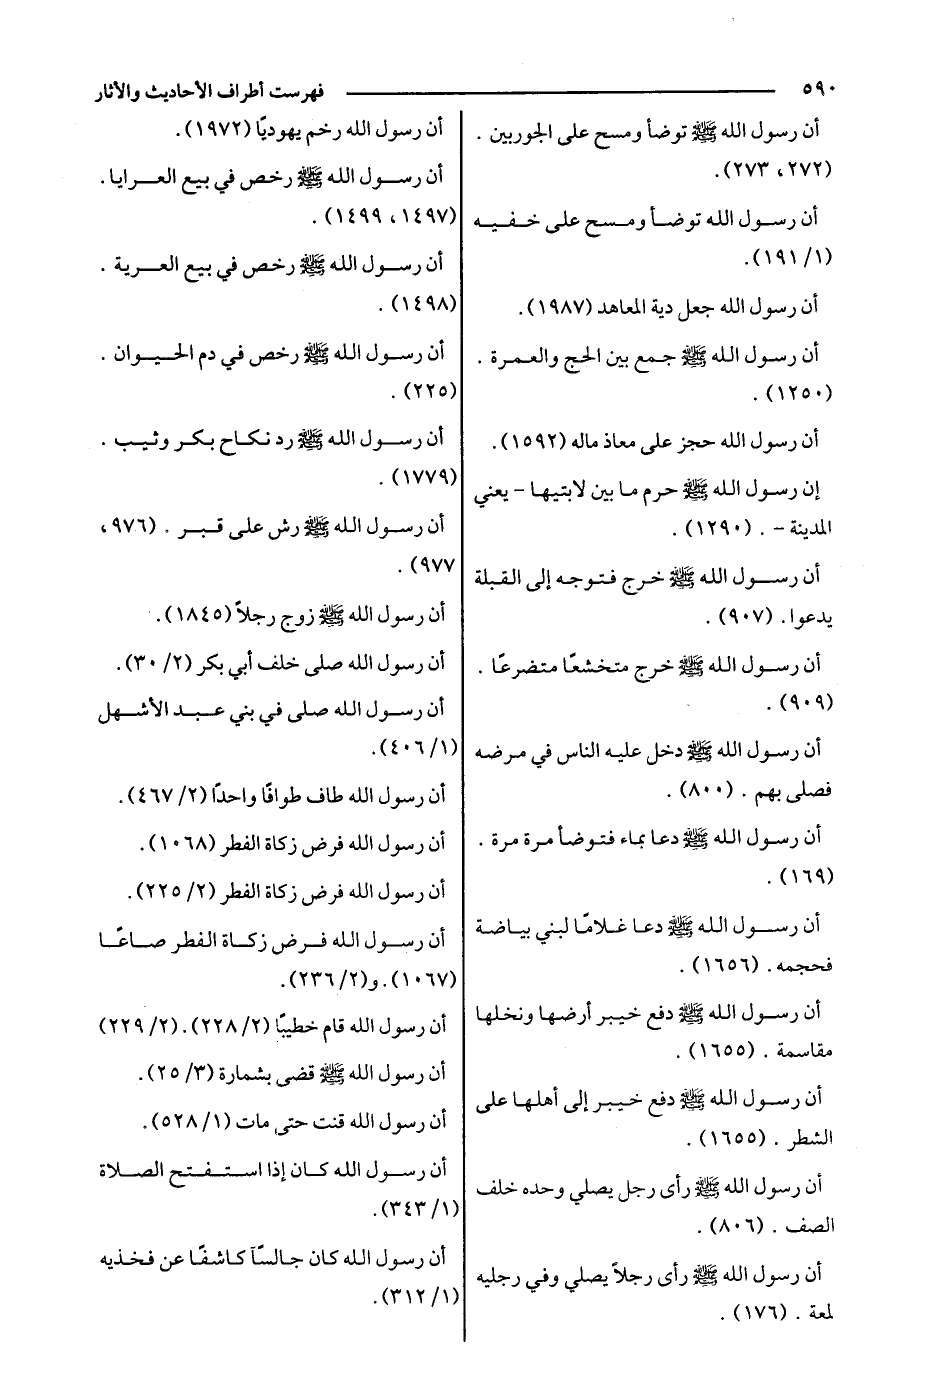 ٥٩٠ فهرست أطراف الأحاديث والآثار
أن رسول الله ﷺ توضأ ومسح على الجوربين .
(٢٧٢، ٢٧٣).
أن رسول الله توضأ ومسح على خفيه
(١/ ١٩١).
أن رسول الله جعل دية المعاهد (١٩٨٧).
أن رسول الله ﷺ جمع بين الحج والعمرة .
(١٢٥٠) .
أن رسول الله حجز على معاذ ماله (١٥٩٢).
إن رسول الله ﷺ حرم ما بين لابتيها - يعني
المدينة - . (١٢٩٠) .
أن رسول الله ﷺ خرج فتوجه إلى القبلة
يدعوا. (٩٠٧) .
أن رسول الله ﷺ خرج متخشعًا متضرعًا .
(٩٠٩) .
أن رسول الله ﷺ دخل عليه الناس في مرضه
فصلى بهم . (٨٠٠) .
أن رسول الله ﷺ دعا بماء فتوضأ مرة مرة .
(١٦٩) .
أن رسول الله ﷺ دعا غلامًا لبني بياضة
فحجمه. (١٦٥٦) .
أن رسول الله ﷺ دفع خيبر أرضها ونخلها
مقاسمة . (١٦٥٥) .
أن رسول الله ﷺ دفع خيبر إلى أهلها على
الشطر . (١٦٥٥) .
أن رسول الله ﷺ رأى رجل يصلي وحده خلف
الصف . (٨٠٦) .
أن رسول الله ﷺ رأى رجلاً يصلي وفي رجليه
لمعة . (١٧٦) .
أن رسول الله رخم يهوديًا (١٩٧٢).
أن رسول الله ﷺ رخص في بيع العرايا.
(١٤٩٧، ١٤٩٩) .
أن رسول الله ﷺ رخص في بيع العرية .
(١٤٩٨) .
أن رسول الله ﷺ رخص في دم الحيوان .
(٢٢٥) .
أن رسول الله ﷺ رد نكاح بكر وثيب .
(١٧٧٩) .
أن رسول الله ﷺ رش على قبر . (٩٧٦،
٩٧٧) .
أن رسول الله ﷺ زوج رجلاً (١٨٤٥).
أن رسول الله صلى خلف أبي بكر (٢/ ٣٠).
أن رسول الله صلى في بني عبد الأشهل
(١/ ٤٠٦).
أن رسول الله طاف طوافًا واحدًا (٢/ ٤٦٧).
أن رسول الله فرض زكاة الفطر (١٠٦٨).
أن رسول الله فرض زكاة الفطر (٢/ ٢٢٥).
أن رسول الله فرض زكاة الفطر صاعًا
(١٠٦٧). و(٢/ ٢٣٦).
أن رسول الله قام خطيبًا (٢/ ٢٢٨). (٢/ ٢٢٩)
أن رسول الله ﷺ قضى بشمارة (٣/ ٢٥).
أن رسول الله قنت حتى مات (١/ ٥٢٨).
أن رسول الله كان إذا استفتح الصلاة
(١/ ٣٤٣).
أن رسول الله كان جالسًا كاشفًا عن فخذيه
(١/ ٣١٢).